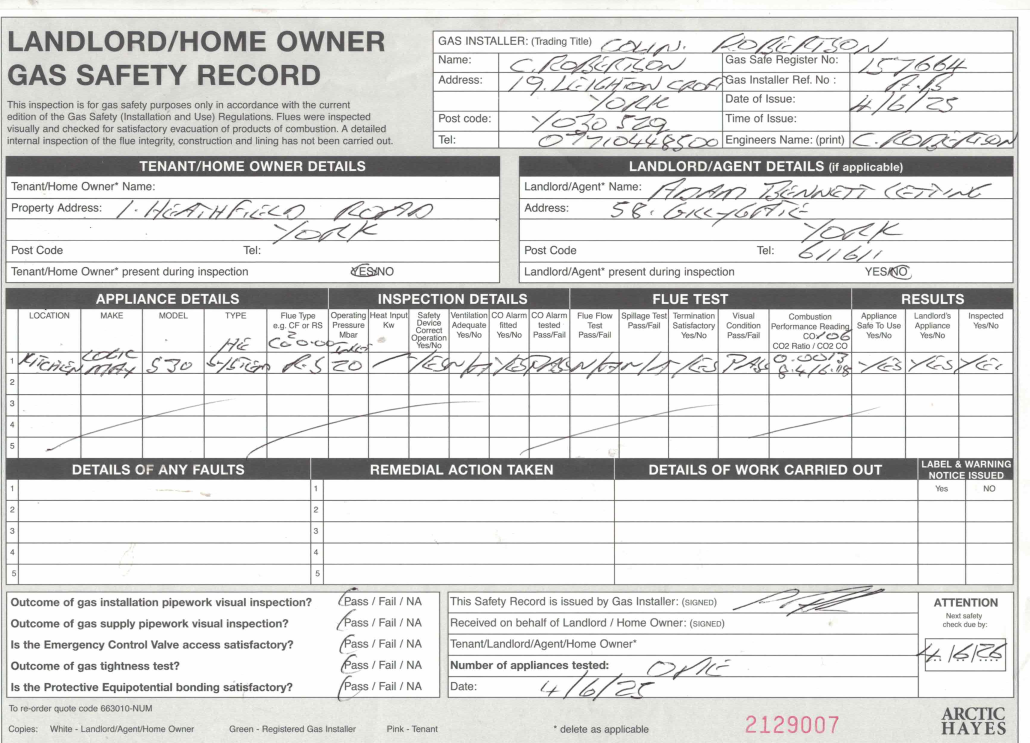 LANDLORD/HOME OWNER
GAS SAFETY RECORD
This inspection is for gas safety purposes only in accordance with the current
edition of the Gas Safety (Installation and Use) Regulations. Flues were inspected
visually and checked for satisfactory evacuation of products of combustion. A detailed
internal inspection of the flue integrity, construction and lining has not been carried out.
GAS INSTALLER: (Trading Title) COLIN. ROBERTSON
Name: C. ROBERTSON Gas Safe Register No: 157664
Address: 19. LEIGHTON CROFT Gas Installer Ref. No :
YORK Date of Issue: 4/6/25
Post code: YO30 5 Time of Issue:
Tel: 07710448500 Engineers Name: (print) C. ROBERTSON
TENANT/HOME OWNER DETAILS
Tenant/Home Owner* Name:
Property Address: 1. HEATHFIELD ROAD
YORK
Post Code Tel:
Tenant/Home Owner* present during inspection YES/NO
LANDLORD/AGENT DETAILS (if applicable)
Landlord/Agent* Name: ADAM BENNETT LETTING
Address: 58. GILLYGATE
YORK
Post Code Tel: 611611
Landlord/Agent* present during inspection YES/NO
APPLIANCE DETAILS INSPECTION DETAILS FLUE TEST RESULTS
LOCATION MAKE MODEL TYPE Flue Type e.g. CF or RS Operating Pressure Mbar Heat Input Kw Safety Device Correct Operation Yes/No Ventilation Adequate Yes/No CO Alarm fitted Yes/No CO Alarm tested Pass/Fail Flue Flow Test Pass/Fail Spillage Test Pass/Fail Termination Satisfactory Yes/No Visual Condition Pass/Fail Combustion Performance Reading CO2 Ratio / CO2 CO Appliance Safe To Use Yes/No Landlord's Appliance Yes/No Inspected Yes/No
HE INLET
1 KITCHEN LOGIC MAX S30 S/SYSTEM R.S 20 YES N/A YES PASS N/A N/A YES PASS 0.0013 YES YES YES
2
3
4
5
DETAILS OF ANY FAULTS REMEDIAL ACTION TAKEN DETAILS OF WORK CARRIED OUT LABEL & WARNING NOTICE ISSUED
Yes NO
1 1
2 2
3 3
4 4
5 5
Outcome of gas installation pipework visual inspection? Pass / Fail / NA
Outcome of gas supply pipework visual inspection? Pass / Fail / NA
Is the Emergency Control Valve access satisfactory? Pass / Fail / NA
Outcome of gas tightness test? Pass / Fail / NA
Is the Protective Equipotential bonding satisfactory? Pass / Fail / NA
This Safety Record is issued by Gas Installer: (SIGNED)
Received on behalf of Landlord / Home Owner: (SIGNED)
Tenant/Landlord/Agent/Home Owner*
Number of appliances tested: ONE
Date: 4/6/25
ATTENTION
Next safety
check due by:
4/6/26
To re-order quote code 663010-NUM
Copies: White - Landlord/Agent/Home Owner Green - Registered Gas Installer Pink - Tenant * delete as applicable 2129007
ARCTIC
HAYES